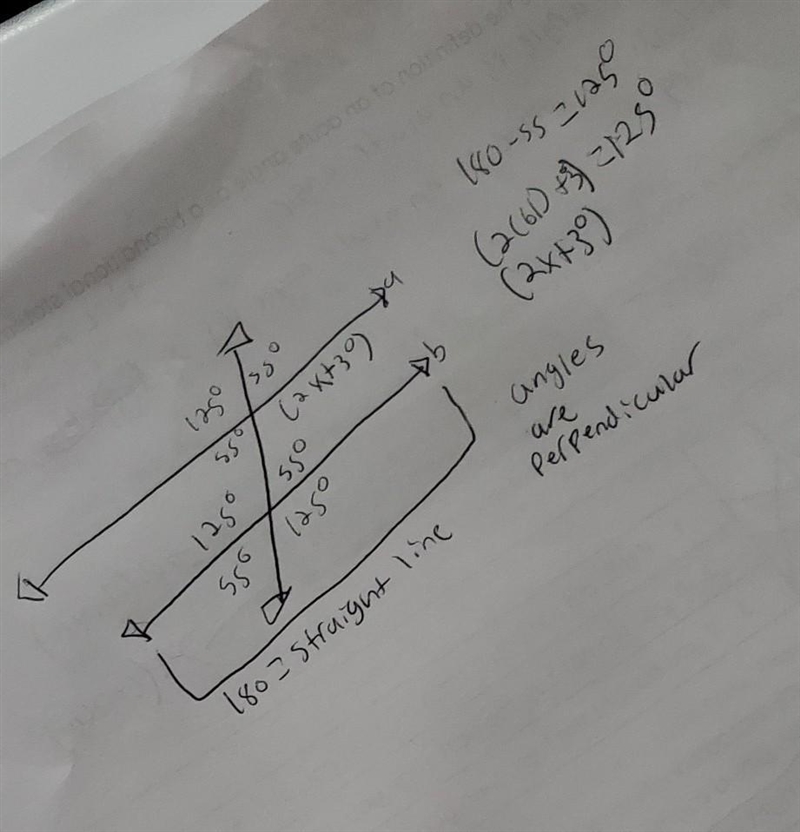 180-55=125°
(2(61)+3)=125°
(2x+3°)
a
55°
125°
(2x+3°)
55°
b
55°
125°
125°
55°
angles
are
perpendicular
180=straight line